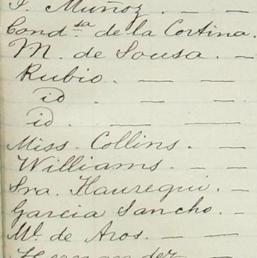 J. Muñoz. — —
Cond.sa de la Cortina.
M. de Sousa. —
Rubio. — —
id — —
id. — —
Miss. Collins. —
Williams. — —
Sra. Hauregui. —
Garcia Sancho. —
M. de Aros. —
Hernandez